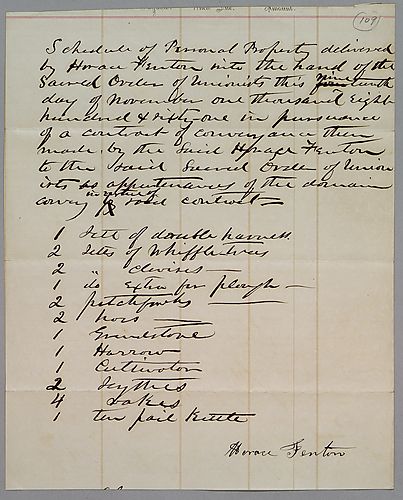 109
Schedule of Personal Property delivered
by Horace Fenton into the hand of the
Sacred Order of Unionists this nineteenth
day of November one thousand eight
hundred & sixty one in pursuance
of a contract of conveyance then
made by the said Horace Fenton
to the said Sacred Order of Union
ists as appurtenances of the domain
in virtue of
said contract —
1 Sett of double harness
2 Setts of Whiffletrees
2 " clevises —
1 do Extra for plough —
2 pitchforks
2 hoes
1 Grindstone
1 Harrow
1 Cultivator
2 Scythes
4 Rakes
1 ten pail Kettle
Horace Fenton